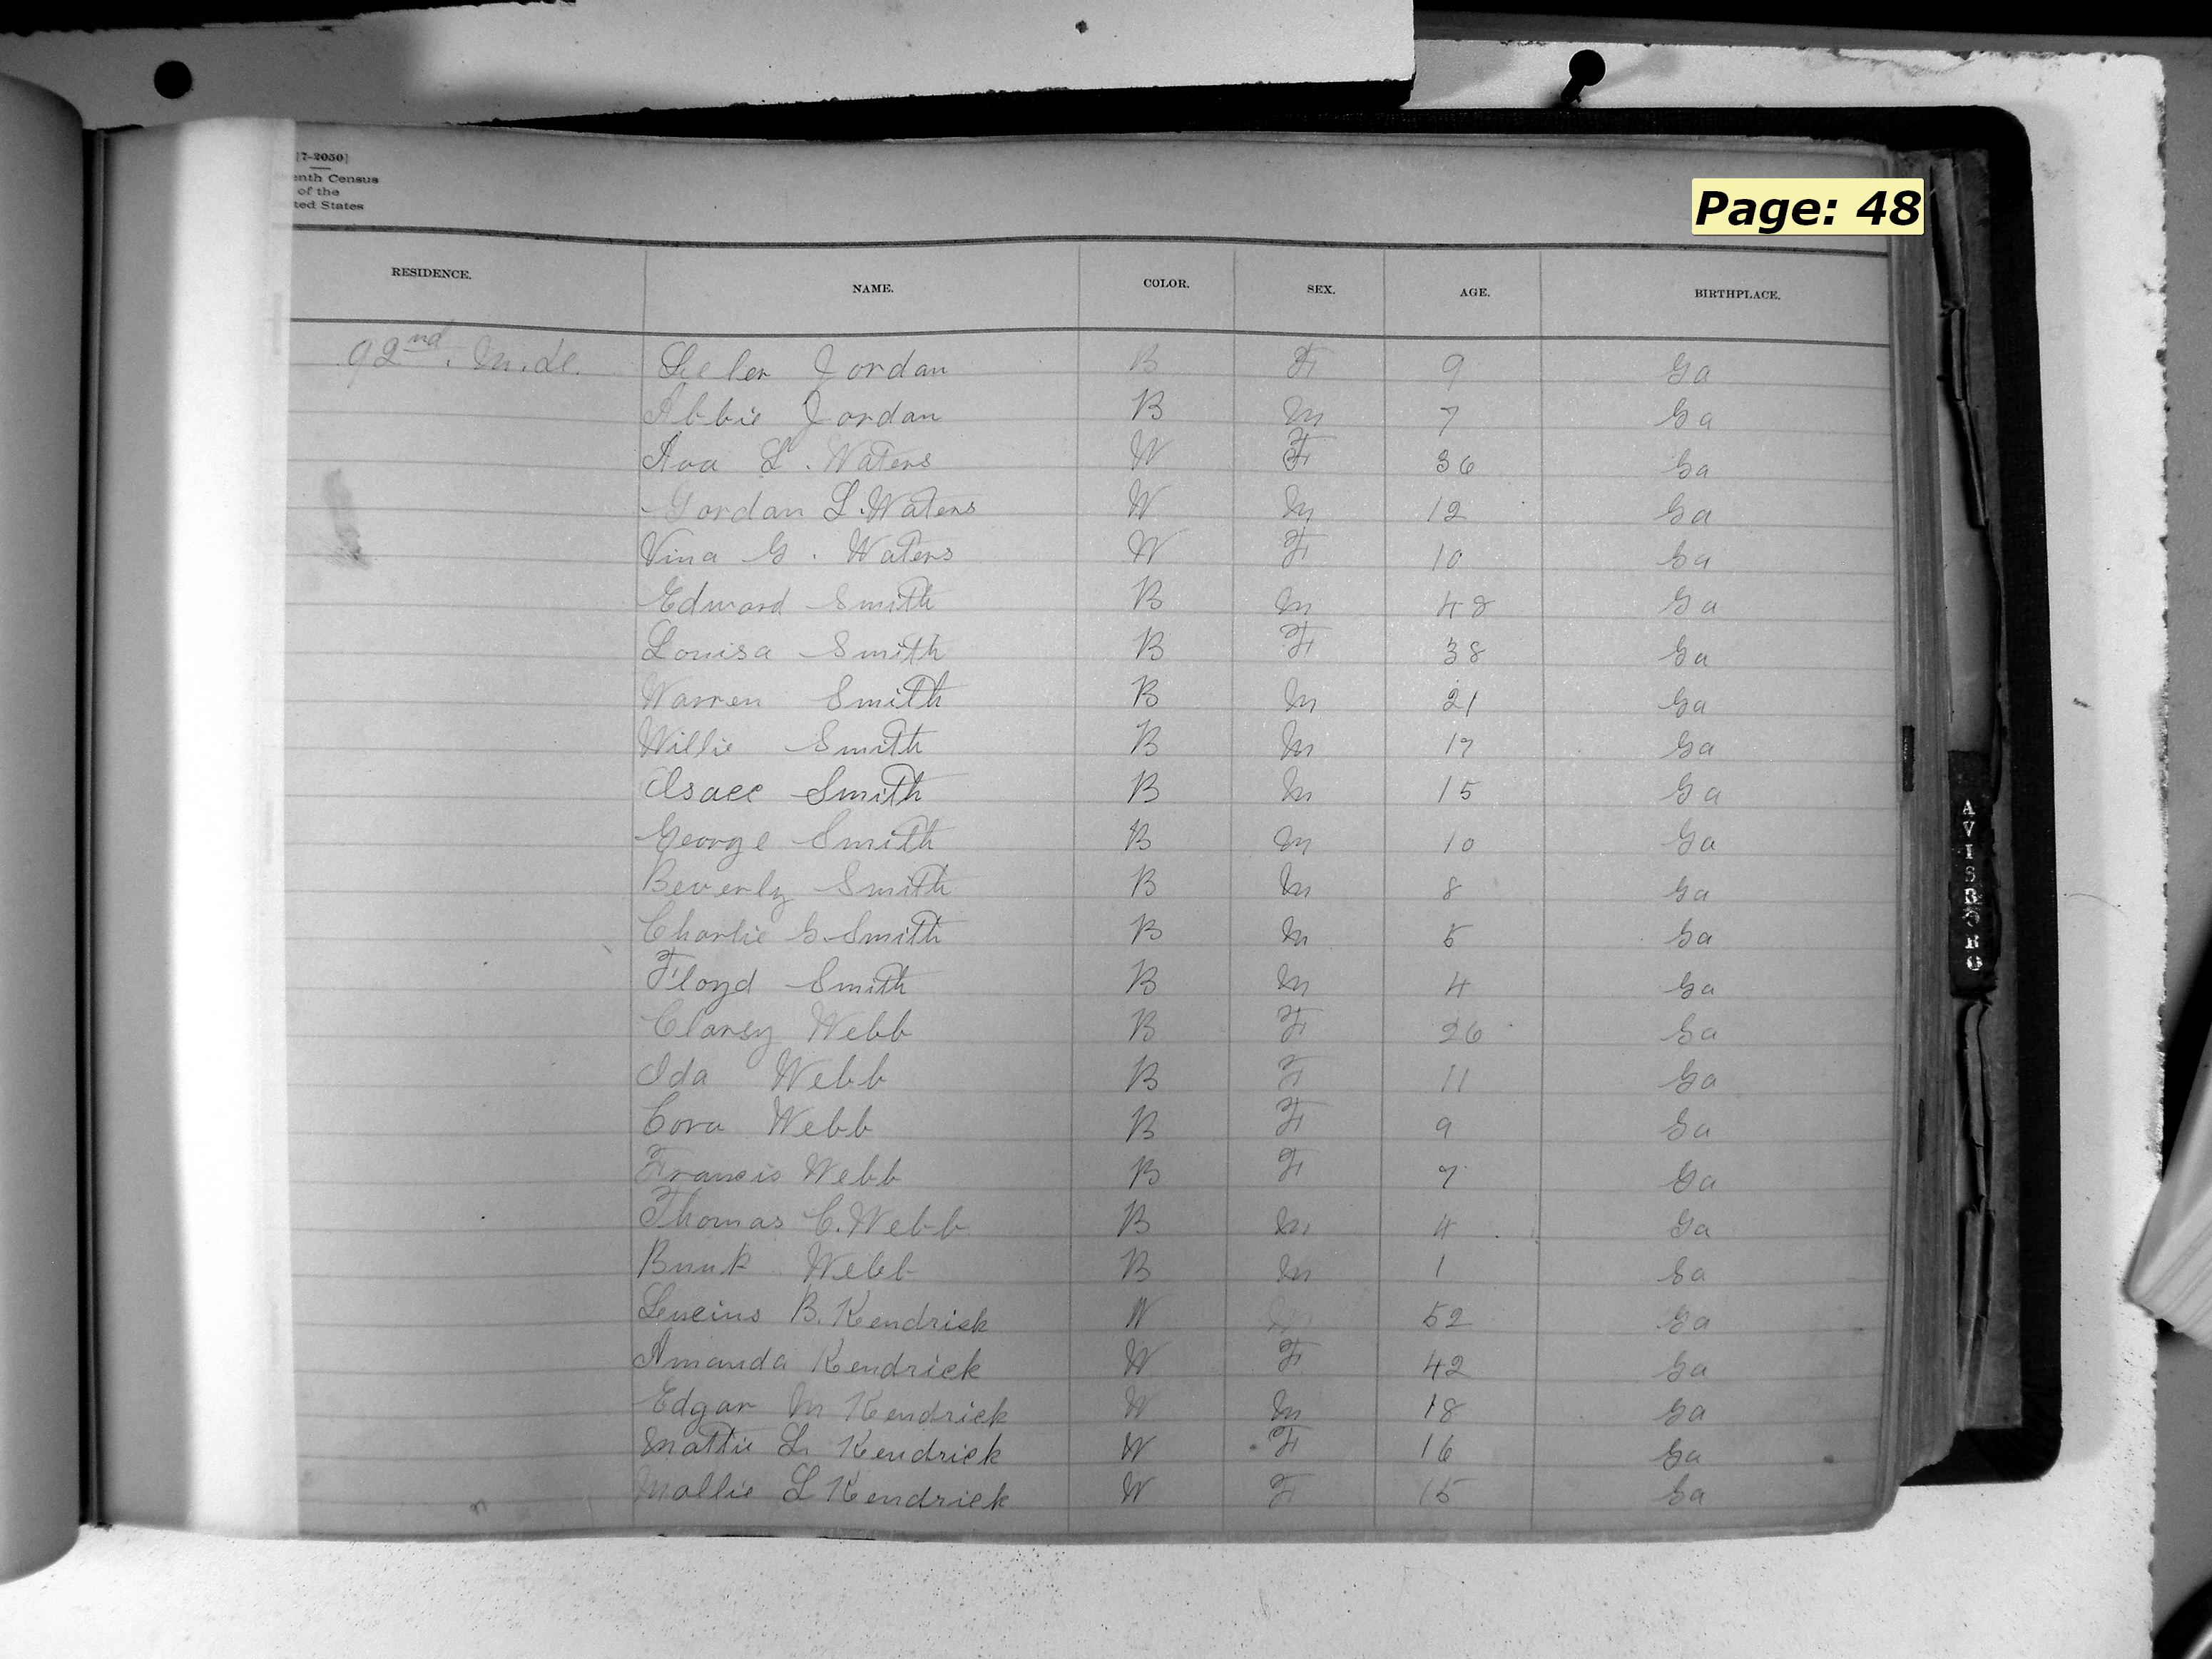 [7-2050]
enth Census
of the
ted States
Page: 48
RESIDENCE. NAME. COLOR. SEX. AGE. BIRTHPLACE.
92nd. Jordan B F 9 Ga
Abbie Jordan B M 7 Ga
Ava L. Waters W F 36 Ga
Gordan L. Waters W M 12 Ga
Vina G. Waters W F 10 Ga
Edward Smith B M 48 Ga
Louisa Smith B F 38 Ga
Warren Smith B M 21 Ga
Willie Smith B M 17 Ga
Isaec Smith B M 15 Ga
George Smith B M 10 Ga
Beverly Smith B M 8 Ga
Charlie G. Smith B M 5 Ga
Floyd Smith B M 4 Ga
Clarsy Webb B F 26 Ga
Ida Webb B F 11 Ga
Cora Webb B F 9 Ga
Francis Webb B F 7 Ga
Thomas C. Webb B M 4 Ga
Bunk Webb B M 1 Ga
B. Kendrick W M 52 Ga
Amanda Kendrick W F 42 Ga
Edgar M Kendrick W M 18 Ga
Mattie L. Kendrick W F 16 Ga
Mollie L Kendrick W F 15 Ga
AVISBORO